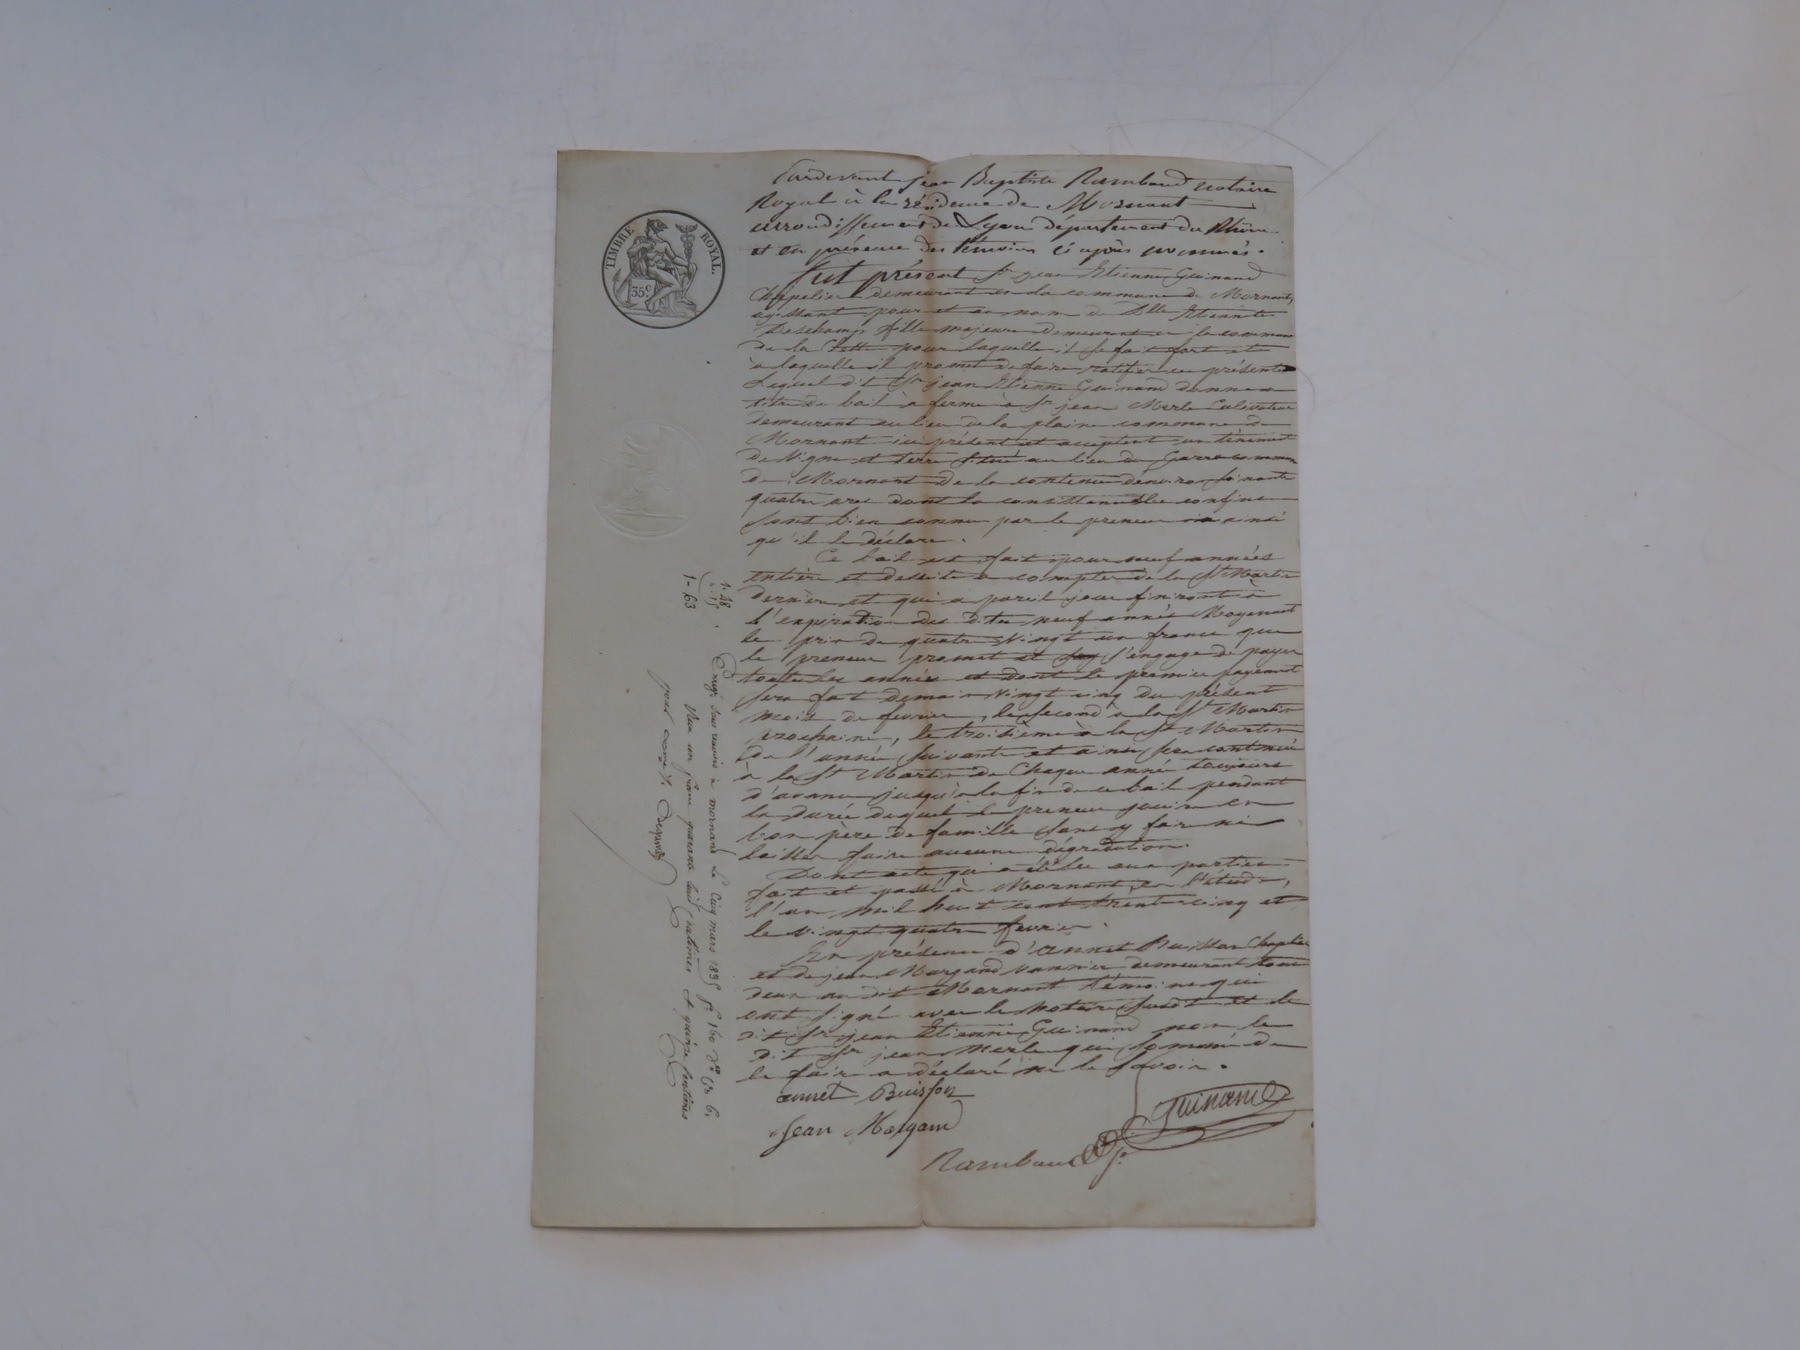 TIMBRE ROYAL.
35c.
Pardevant jean Baptiste Rambaud notaire
Royal à la résidence de Mornant
arrondissement de Lyon département du Rhône
et en présence des témoins ci après nommés.
fut présent Sr jean Etienne Guinand
Chapelier demeurant en la commune de Mornant,
agissant pour et au nom de Dlle Etiennette
Deschamp fille majeure demeurant en la commune
de la pour laquelle il se fait fort et
à laquelle il promet de faire ratifier ces présentes
Lequel dit Sr jean Etienne Guinand donne a
titre de bail à ferme à Sr jean Merle Cultivateur
demeurant au lieu de la plaine commune de
Mornant ici présent et acceptant un tènement
de Vigne et terre Situé au lieu du commune
de Mornant de la contenue d'environ soixante
quatre ares dont la consistance et les confins
sont bien connus par le preneur ainsi
qu'il le déclare.
Ce bail est fait pour neuf années
entière et de suite a compter de la St Martin
dernier et qui a pareil jour finiront à
l'expiration des dites neuf année Moyennant
le prix de quatre Vingt un francs que
le preneur promet et s'engage de payer
toutes les années et dont le premier payement
sera fait demain Vingt cinq du présent
mois de fevrier, le second a la St Martin
prochaine, le troisième à la St Martin
de l'année suivante et ainsi sera continué
à la St Martin de Chaque année toujours
d'avance jusqu'à la fin de ce bail pendant
la durée duquel le preneur jouira en
bon père de famille sans y faire ni
laisser faire aucune dégradation.
Dont acte qui a été lu aux parties
fait et passé à Mornant, en l'étude,
l'an mil huit cent trente cinq et
le vingt quatre fevrier.
En présence d'annet Buisson Chapelier
et de jean Margand Vannier demeurant tous
deux au dit Mornant témoins qui
ont signé avec le Notaire susdit et le
dit Sr jean Etienne Guinand non le
dit Sr jean Merle qui sommé de
le faire a déclaré ne le savoir.
annet Buisson
Jean Margand
Guinand
Rambaud
1-48
15
1-63
Enregistré sous à mornant Le Cinq mars 1835 fo 160 Vo Ce 6.
Reçu un franc quarante huit centimes et quinze centimes
pour